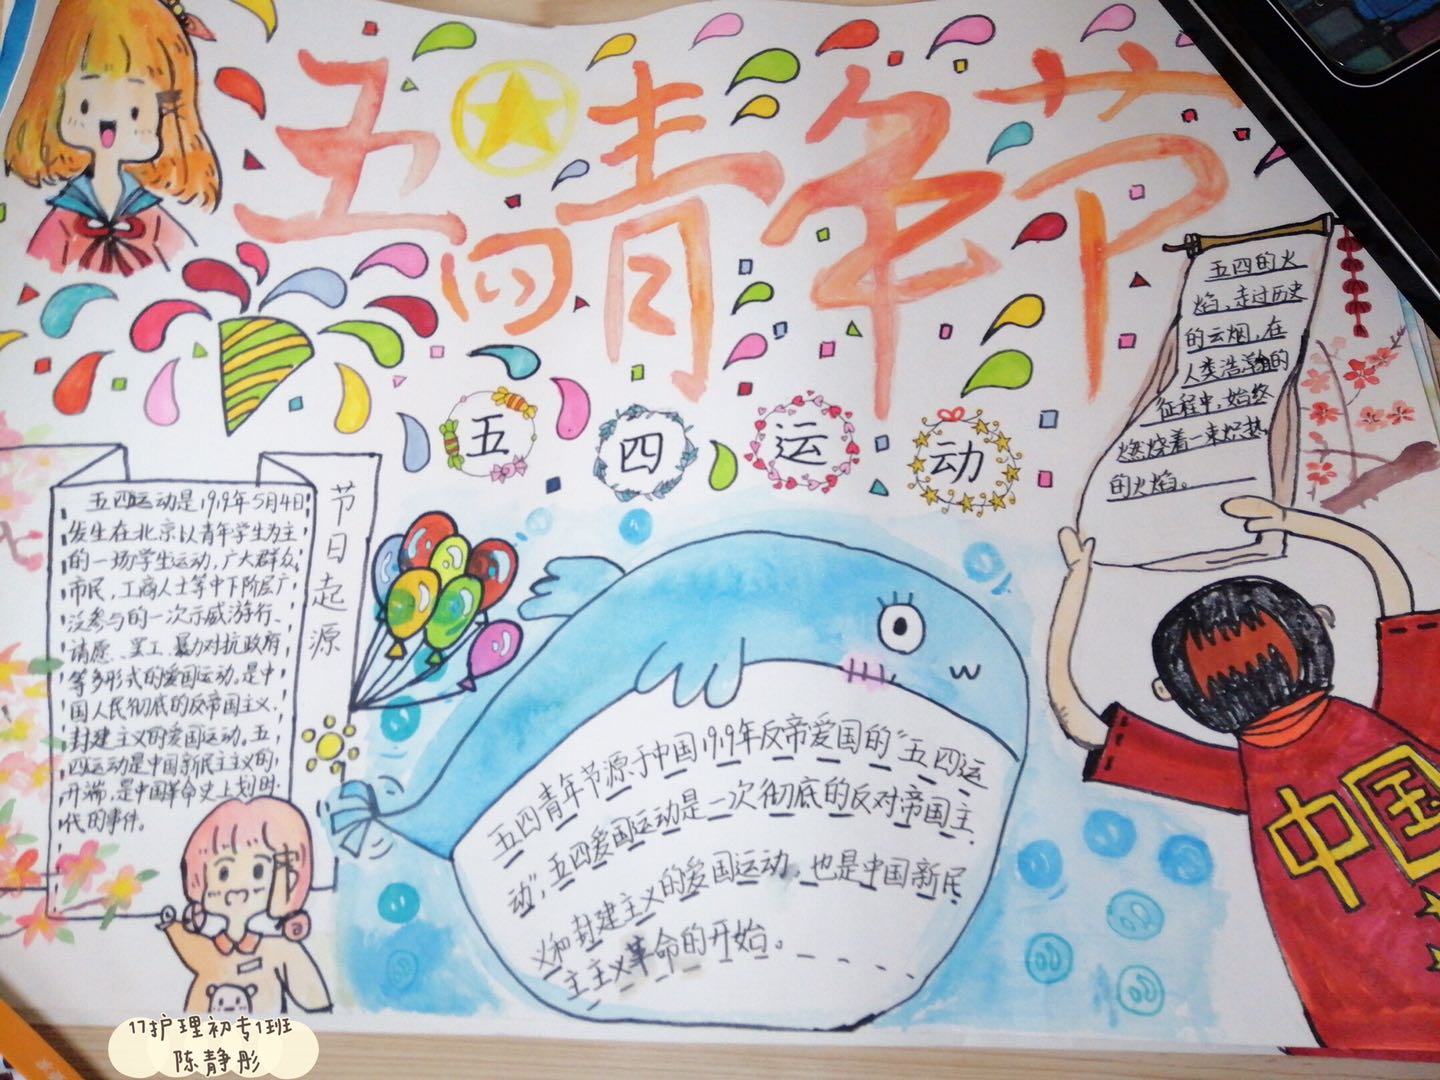 五四青年节
五四运动
节日起源
五四运动是1919年5月4日
发生在北京以青年学生为主
的一场学生运动,广大群众
市民,工商人士等中下阶层广
泛参与的一次示威游行、
请愿、罢工、暴力对抗政府
等多形式的爱国运动,是中
国人民彻底的反帝国主义、
封建主义的爱国运动。五
四运动是中国新民主主义的
开端,是中国革命史上划时
代的事件。
五四青年节源于中国1919年反帝爱国的“五四运
动”,五四爱国运动是一次彻底的反对帝国主
义和封建主义的爱国运动,也是中国新民
主主义革命的开始。
五四的火
焰,走过历史
的云烟,在
人类浩瀚的
征程中,始终
燃烧着一束炽热
的火焰。
中国
17护理初专1班
陈静彤